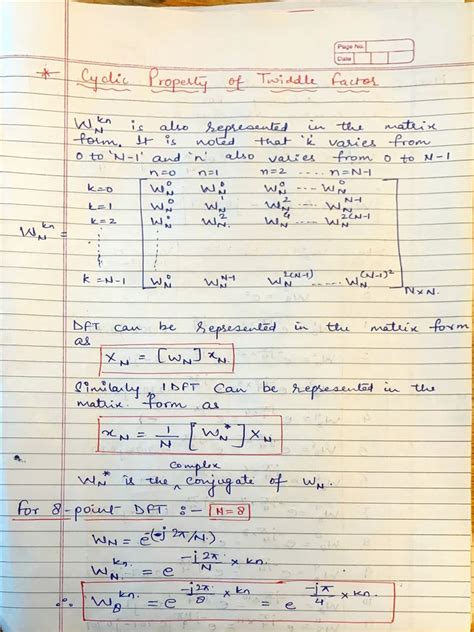 Page No.
Date
* Cyclic Property of Twiddle Factor
W_N^{kn} is also represented in the matrix
form. It is noted that 'k' varies from
0 to 'N-1' and 'n' also varies from 0 to N-1
n=0 n=1 n=2 .... n=N-1
k=0 W_N^0 W_N^0 W_N^0 ---- W_N^0
k=1 W_N^0 W_N^1 W_N^2 ---- W_N^{N-1}
k=2 W_N^0 W_N^2 W_N^4 ---- W_N^{2(N-1)}
W_N^{kn} =
k=N-1 W_N^0 W_N^{N-1} W_N^{2(N-1)} ..... W_N^{(N-1)^2}
N×N.
DFT can be represented in the matrix form
as
X_N = [W_N] x_N
Similarly IDFT can be represented in the
matrix form as
x_N = 1/N [W_N^*] X_N
W_N^* is the complex conjugate of W_N.
For 8-point DFT :- N=8
W_N = e^{(-j 2π/N)}
W_N^{kn} = e^{-j2π/N × kn}
∴ W_8^{kn} = e^{-j2π/8 × kn} = e^{-jπ/4 × kn}.